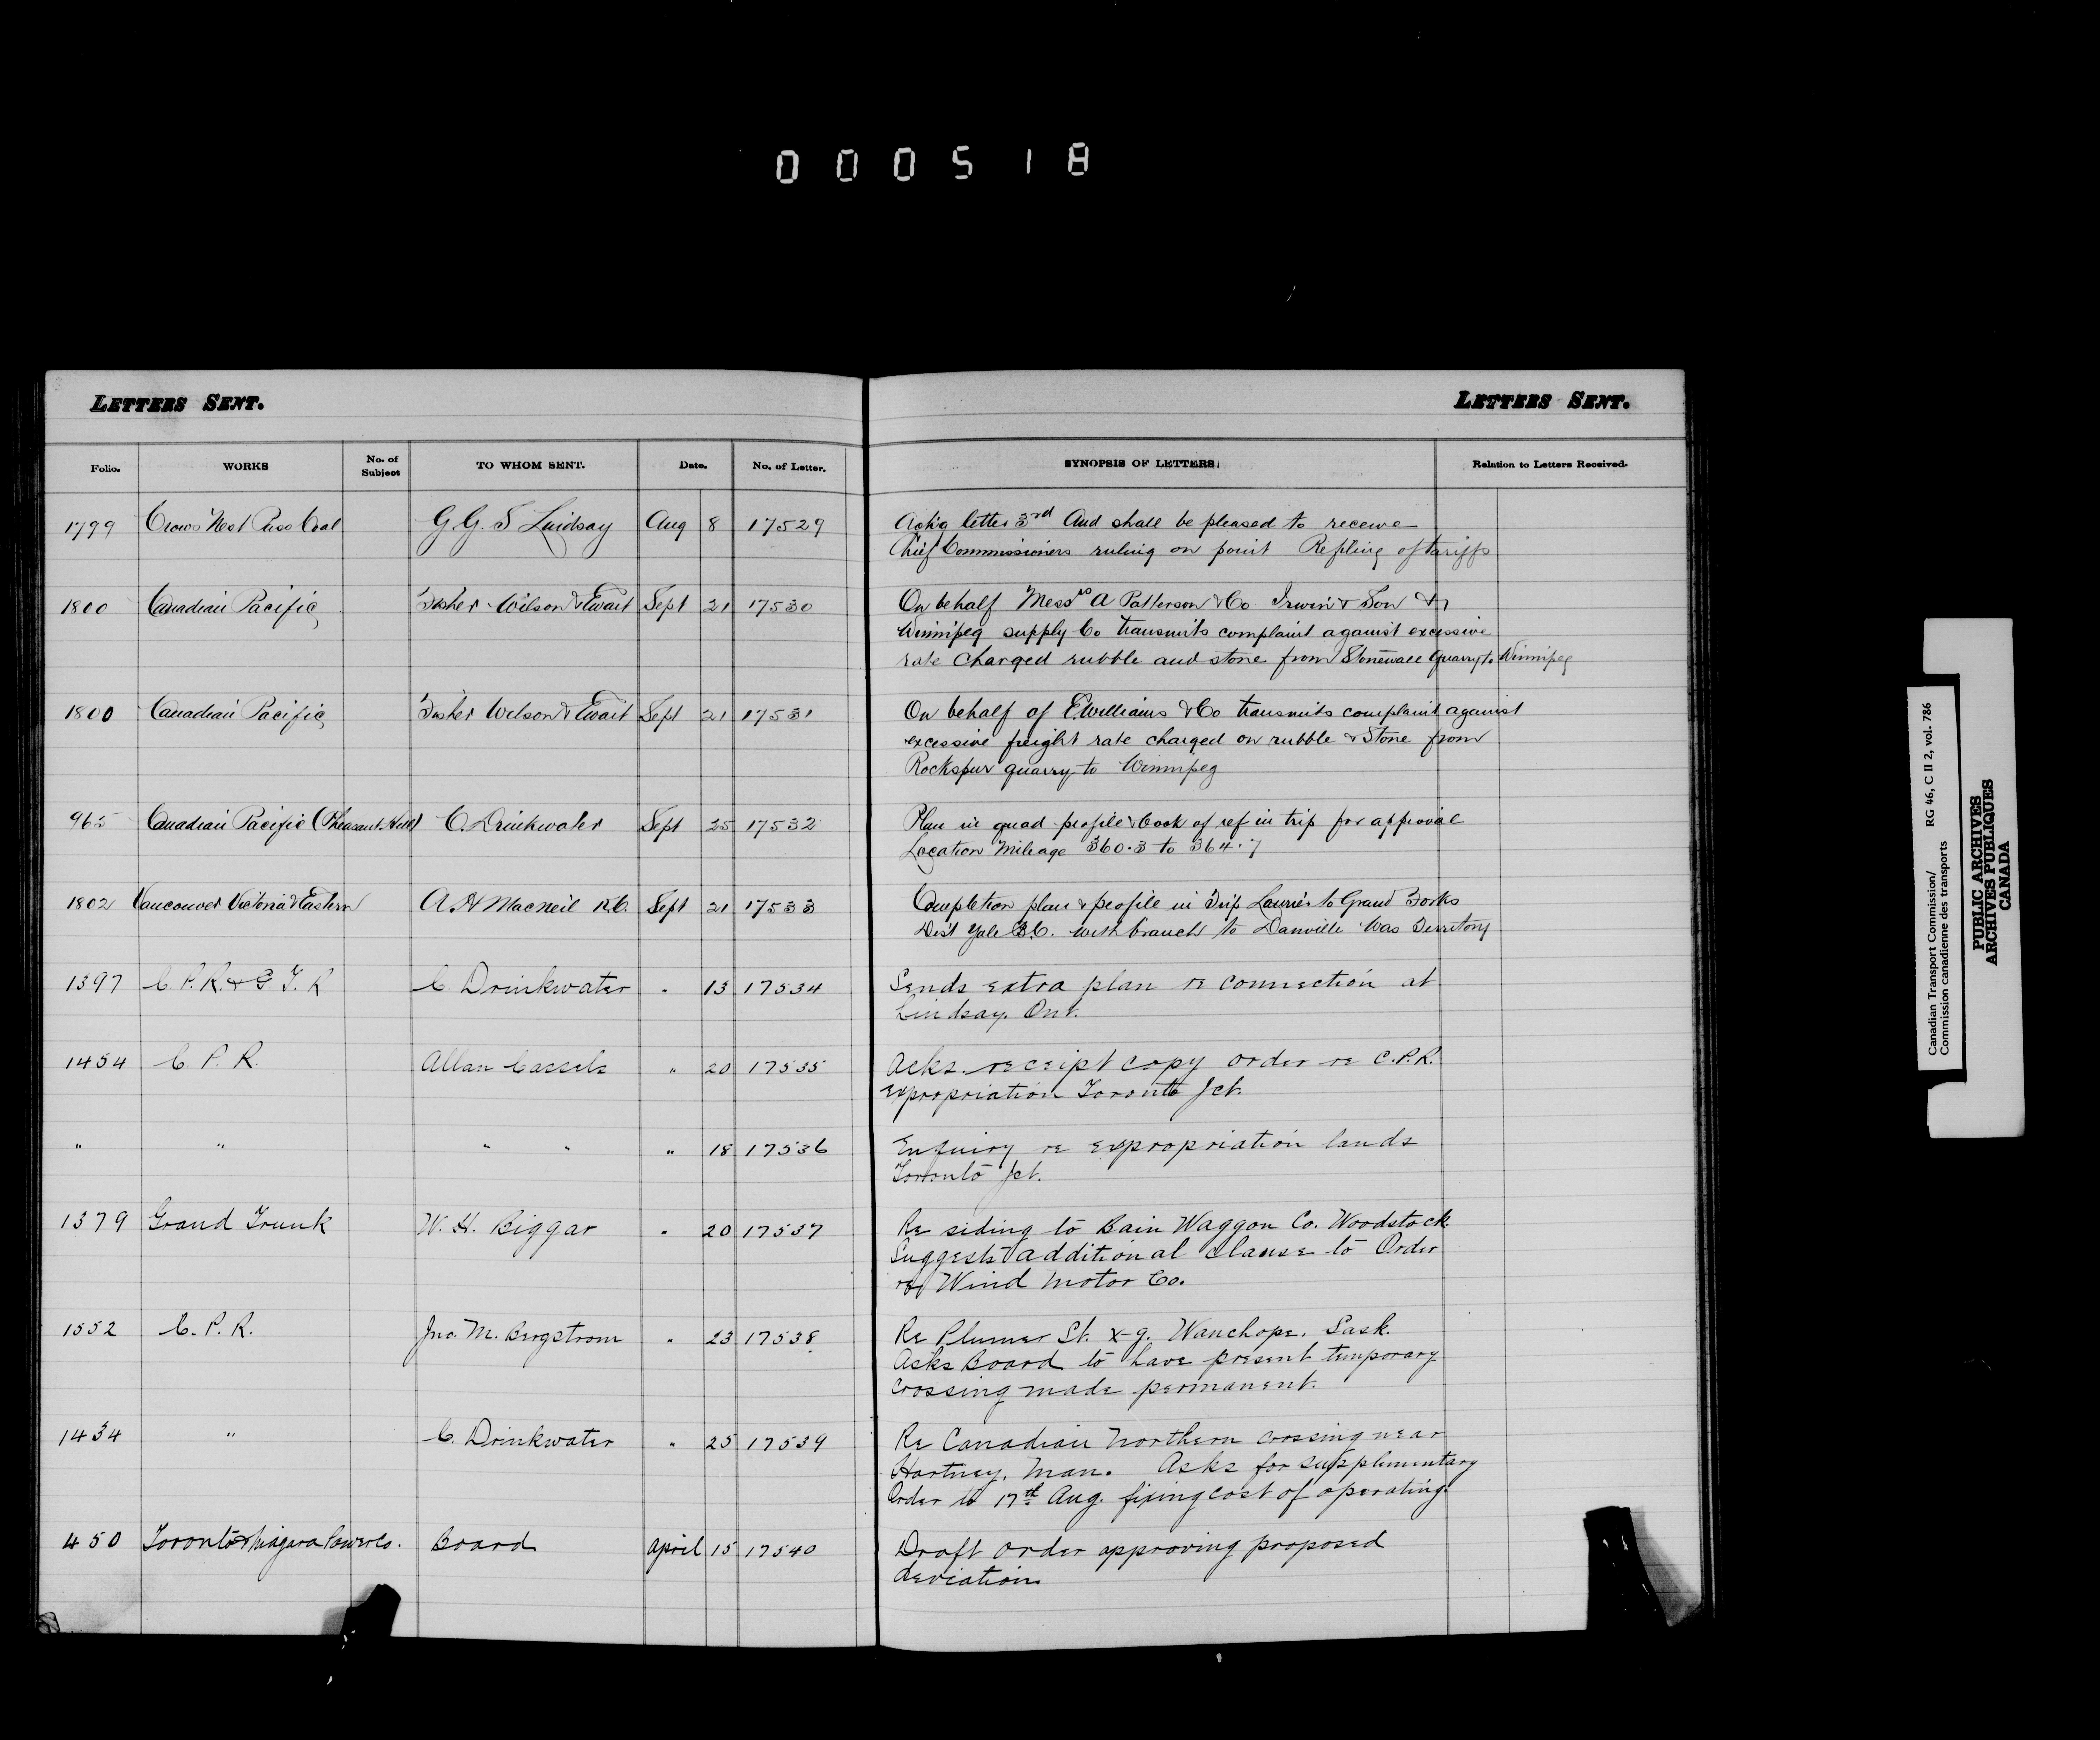 000518
LETTERS SENT.
LETTERS SENT.
Folio. WORKS No. of Subject TO WHOM SENT. Date. No. of Letter. SYNOPSIS OF LETTERS. Relation to Letters Received.
1799 Crows Nest Pass Coal G. G. S Lindsay Aug 8 17529 Ackg letter 3rd And shall be pleased to receive
Chief Commissioners ruling on point Refiling of tariffs
1800 Canadian Pacific Fisher Wilson & Ewart Sept 21 17530 On behalf Messrs A Patterson & Co Irwin & Son &
Winnipeg supply Co transmits complaint against excessive
rate charged rubble and stone from Stonewall Quarry to Winnipeg
1800 Canadian Pacific Fisher Wilson & Ewart Sept 21 17531 On behalf of E. Williams & Co transmits complaint against
excessive freight rate charged on rubble & Stone from
Rockspur quarry to Winnipeg
965 Canadian Pacific (Pheasant Hills) C. Drinkwater Sept 25 17532 Plan in quad profile & book of ref in trip for approval
Location Mileage 360.3 to 364.7
1802 Vancouver Victoria & Eastern A H MacNeil K.C. Sept 21 17533 Completion plan & profile in Trip Laurier to Grand Forks
Dist Yale B.C. with branch to Danville Was Territory
1397 C. P. R. & G T. R C Drinkwater " 13 17534 Sends extra plan re connection at
Lindsay. Ont.
1454 C P. R. Allan Cassels " 20 17535 Acks. receipt copy order re C.P.R.
expropriation Toronto Jct.
" " " " " 18 17536 Enquiry re expropriation lands
Toronto Jct.
1379 Grand Trunk W. H. Biggar " 20 17537 Re siding to Bain Waggon Co. Woodstock
Suggests additional clause to Order
re Wind Motor Co.
1552 C. P. R. Jno. M. Bergstrom " 23 17538 Re Plumer St. x-g. Wauchope. Sask.
Asks Board to have present temporary
crossing made permanent.
1434 " C. Drinkwater " 25 17539 Re Canadian Northern crossing near
Hartney, Man. Asks for supplementary
Order to 17th Aug. fixing cost of operating.
450 Toronto & Niagara Power Co. Board April 15 17540 Draft order approving proposed
deviation.
Canadian Transport Commission/ RG 46, C II 2, vol. 786
Commission canadienne des transports
PUBLIC ARCHIVES
ARCHIVES PUBLIQUES
CANADA